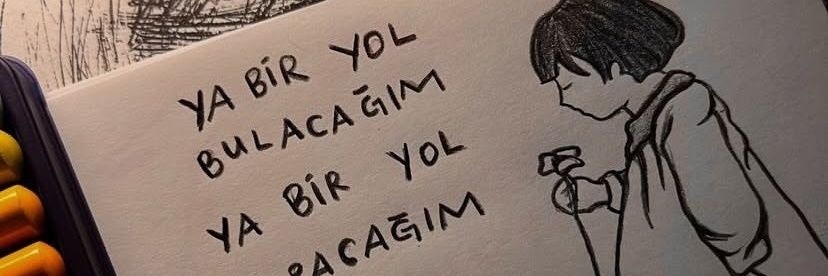 YA BİR YOL
BULACAĞIM
YA BİR YOL